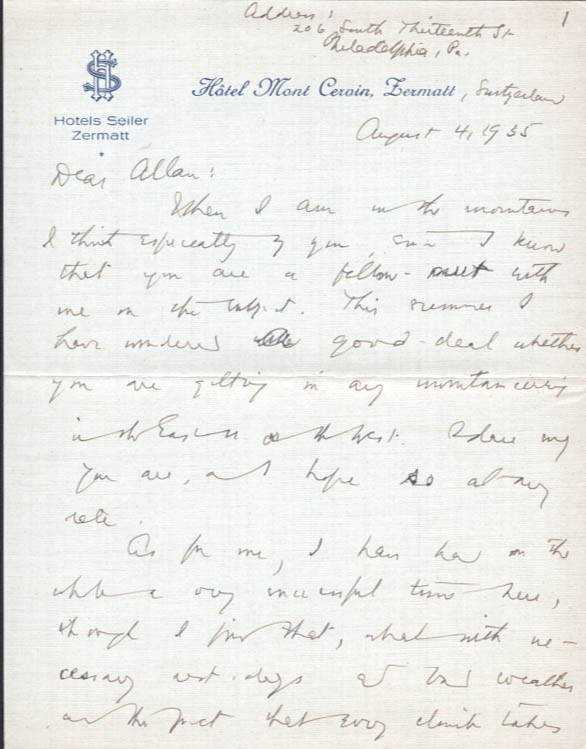 1
Address:
206 South Thirteenth St
Philadelphia, Pa.
Hôtel Mont Cervin, Zermatt, Switzerland
Hotels Seiler
Zermatt
August 4, 1935
Dear Allan:
When I am in the mountains
I think especially of you, since I know
that you are a fellow- with
me on the subject. This summer I
have wondered a good deal whether
you are getting in any mountaineering
in the East or in the West. I dare say
you are, and I hope so at any
rate.
As for me, I have had on the
whole a very successful time here,
though I find that, what with ne-
cessary rest-days and bad weather
and the fact that every climb takes